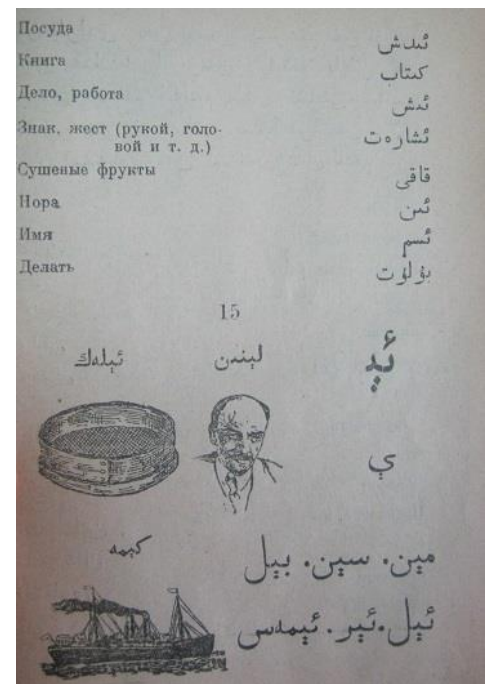 Посуда ئىدىش
Книга كىتاب
Дело, работа ئىش
Знак, жест (рукой, голо-
вой и т. д.) ئىشارەت
Сушеные фрукты قاقى
Нора ئىن
Имя ئىسم
Делать بۇلۇت
15
ئېلەك لېنىن ئېـ
ې
كېمە مېن. سېن. بېل
ئېل. ئېر. ئېمەس